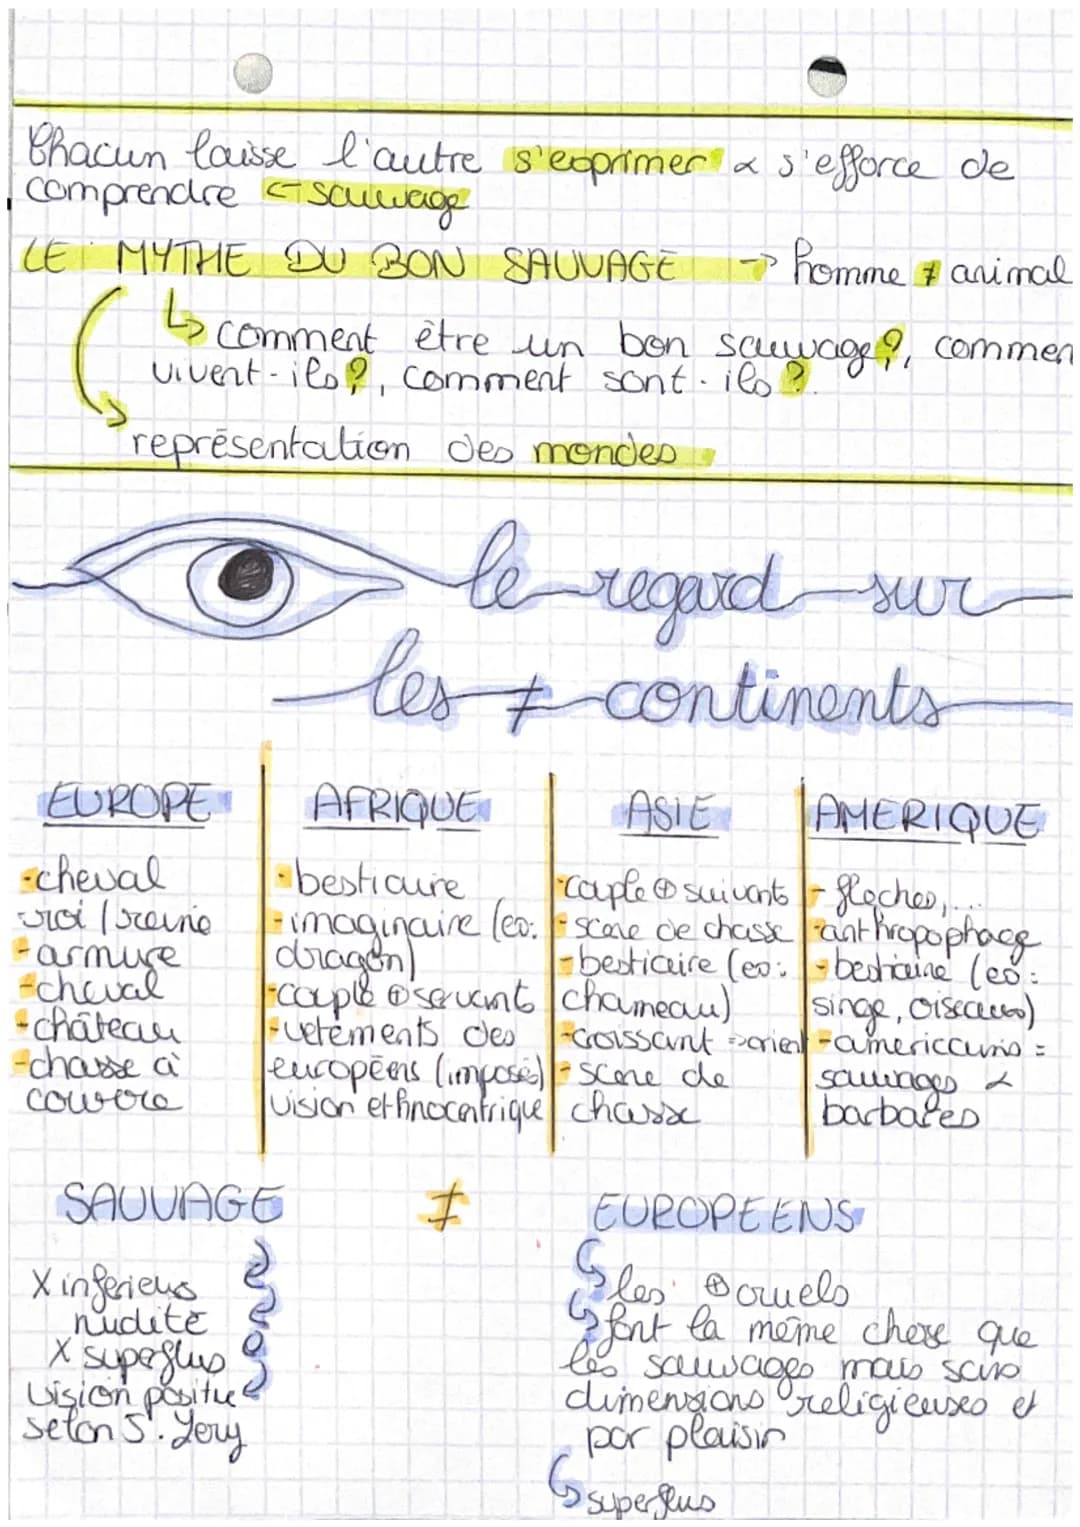 Chacun laisse l'autre s'exprimer & s'efforce de
comprendre ← sauvage
LE MYTHE DU BON SAUVAGE → homme ≠ animal
↳ comment être un bon sauvage?, commen
vivent-ils?, comment sont-ils?
représentation des mondes
le regard sur
les ≠ continents
EUROPE
-cheval
roi / reine
-armure
-cheval
-château
-chasse à
courre
AFRIQUE
-bestiaire
-imaginaire (ex:
dragon)
-couple ⊕ servants
-vêtements des
européens (imposés)
vision ethnocentrique
ASIE
-couple ⊕ suivants
-scène de chasse
-bestiaire (ex:
chameau)
-croissant => orient
-scène de
chasse
AMERIQUE
- flèches,...
-anthropophage
-bestiaire (ex:
singe, oiseaux)
-américains =
sauvages &
barbares
SAUVAGE ≠ EUROPEENS
X inférieurs
nudité
X superflus
vision positive
selon J. Léry
↳ les ⊕ cruels
↳ font la même chose que
les sauvages mais sans
dimensions religieuses et
par plaisir
↳ superflus